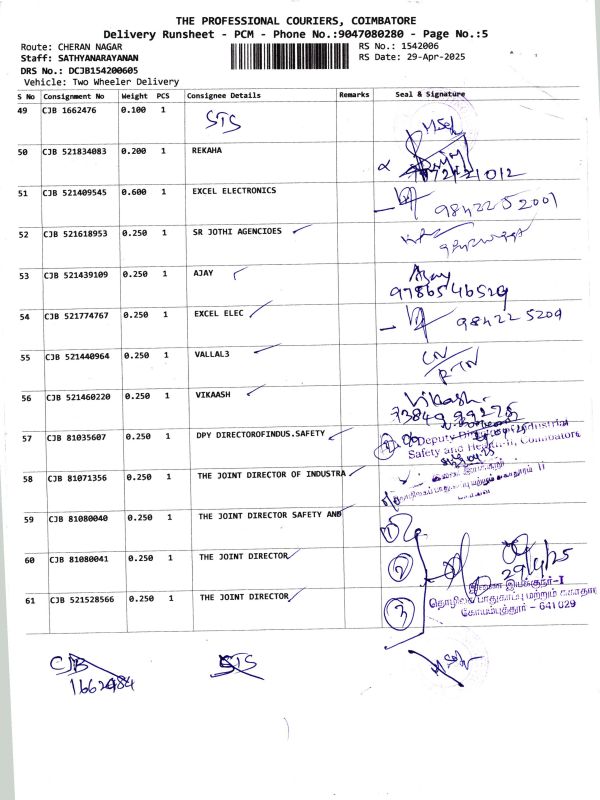 THE PROFESSIONAL COURIERS, COIMBATORE
Delivery Runsheet - PCM - Phone No.:9047080280 - Page No.:5
Route: CHERAN NAGAR RS No.: 1542006
Staff: SATHYANARAYANAN RS Date: 29-Apr-2025
DRS No.: DCJB154200605
Vehicle: Two Wheeler Delivery
S No Consignment No Weight PCS Consignee Details Remarks Seal & Signature
49 CJB 1662476 0.100 1 STS
50 CJB 521834083 0.200 1 REKAHA
51 CJB 521409545 0.600 1 EXCEL ELECTRONICS 9842252001
52 CJB 521618953 0.250 1 SR JOTHI AGENCIOES
53 CJB 521439109 0.250 1 AJAY Ajay
9786546529
54 CJB 521774767 0.250 1 EXCEL ELEC 984225 5209
55 CJB 521440964 0.250 1 VALLAL3 CN/
RTN
56 CJB 521460220 0.250 1 VIKAASH Vikash
57 CJB 81035607 0.250 1 DPY DIRECTOROFINDUS.SAFETY Deputy Director of Industrial
Safety and Health-II, Coimbatore
58 CJB 81071356 0.250 1 THE JOINT DIRECTOR OF INDUSTRA
59 CJB 81080040 0.250 1 THE JOINT DIRECTOR SAFETY AND 1
60 CJB 81080041 0.250 1 THE JOINT DIRECTOR 2 29/4/25
61 CJB 521528566 0.250 1 THE JOINT DIRECTOR 3 இணை இயக்குநர்-I
தொழிலக பாதுகாப்பு மற்றும் சுகாதார
கோயம்புத்தூர் - 641029
CJB STS
1662484